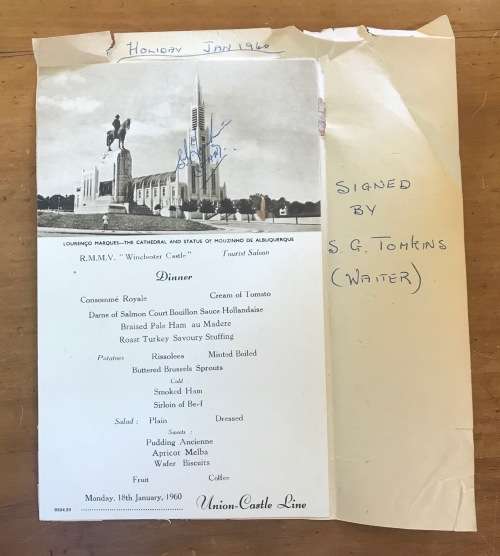 HOLIDAY JAN 1960
LOURENÇO MARQUES—THE CATHEDRAL AND STATUE OF MOUZINHO DE ALBUQUERQUE
R.M.M.V. "Winchester Castle" Tourist Saloon
Dinner
Consommé Royale Cream of Tomato
Darne of Salmon Court Bouillon Sauce Hollandaise
Braised Pale Ham au Madere
Roast Turkey Savoury Stuffing
Potatoes Rissolees Minted Boiled
Buttered Brussels Sprouts
Cold
Smoked Ham
Sirloin of Beef
Salad : Plain Dressed
Sweets :
Pudding Ancienne
Apricot Melba
Wafer Biscuits
Fruit Coffee
Monday, 18th January, 1960
Union-Castle Line
SIGNED
BY
S. G. TOMKINS
(WAITER)